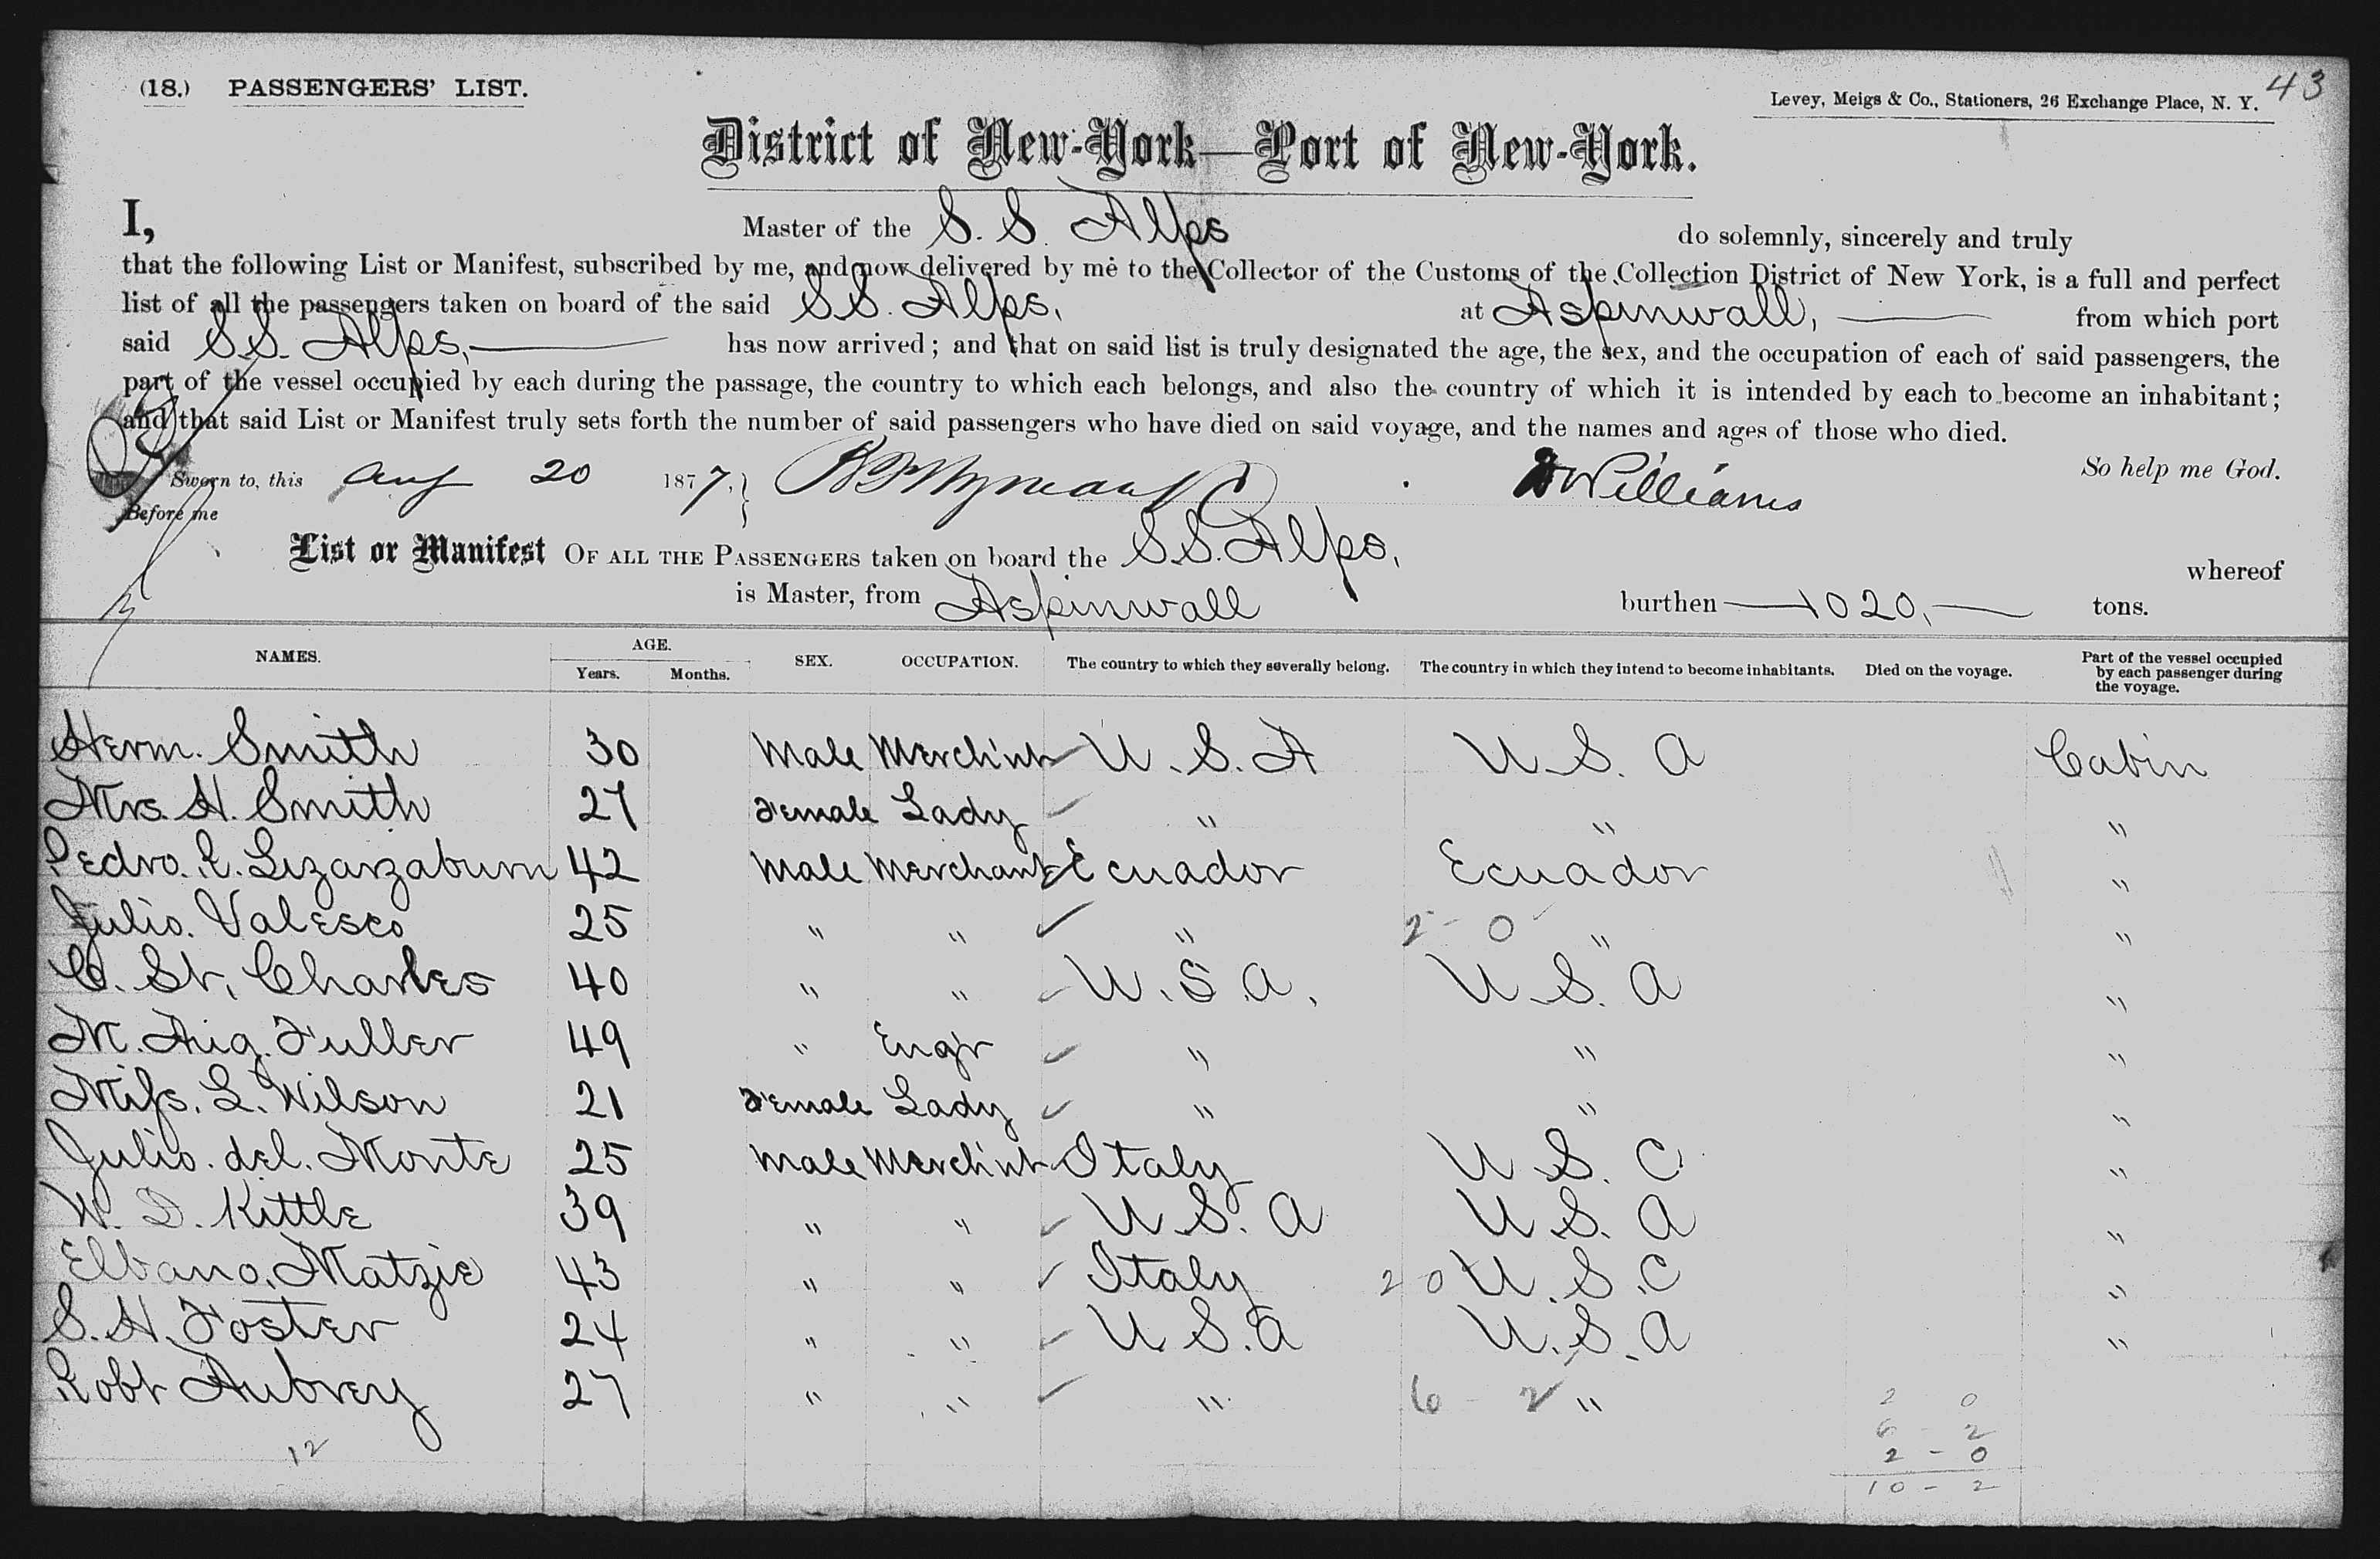 (18.) PASSENGERS' LIST.
Levey, Meigs & Co., Stationers, 26 Exchange Place, N. Y. 43
District of New-York—Port of New-York.
I, Master of the S. S. Alps do solemnly, sincerely and truly
that the following List or Manifest, subscribed by me, and now delivered by me to the Collector of the Customs of the Collection District of New York, is a full and perfect
list of all the passengers taken on board of the said S.S. Alps, at Aspinwall, from which port
said S.S. Alps, has now arrived; and that on said list is truly designated the age, the sex, and the occupation of each of said passengers, the
part of the vessel occupied by each during the passage, the country to which each belongs, and also the country of which it is intended by each to become an inhabitant;
and that said List or Manifest truly sets forth the number of said passengers who have died on said voyage, and the names and ages of those who died.
Sworn to, this Aug 20 1877, Williams So help me God.
Before me
List or Manifest OF ALL THE PASSENGERS taken on board the S.S. Alps, whereof
is Master, from Aspinwall burthen 1020, tons.
NAMES. AGE. Years. Months. SEX. OCCUPATION. The country to which they severally belong. The country in which they intend to become inhabitants. Died on the voyage. Part of the vessel occupied by each passenger during the voyage.
Herm. Smith 30 Male Merch'nt U.S.A U.S.A Cabin
Mrs. H. Smith 27 Female Lady " " "
Pedro. R. Lizarzaburu 42 Male Merchant Ecuador Ecuador "
Julio. Valesco 25 " " " 2 - 0 " "
C. St. Charles 40 " " U.S.A. U.S.A "
M. Aug. Fuller 49 " Engr " " "
Miss. L. Wilson 21 Female Lady " " "
Julio. del. Monte 25 Male Merch'nt Italy U.S.C "
W. D. Kittle 39 " " U.S.A U.S.A "
Elbano. Matzie 43 " " Italy 2 0 U.S.C "
S. H. Foster 24 " " U.S.A U.S.A "
Robt Aubrey 27 " " " 6 - 2 "
12
2 0
6 - 2
2 - 0
10 - 2